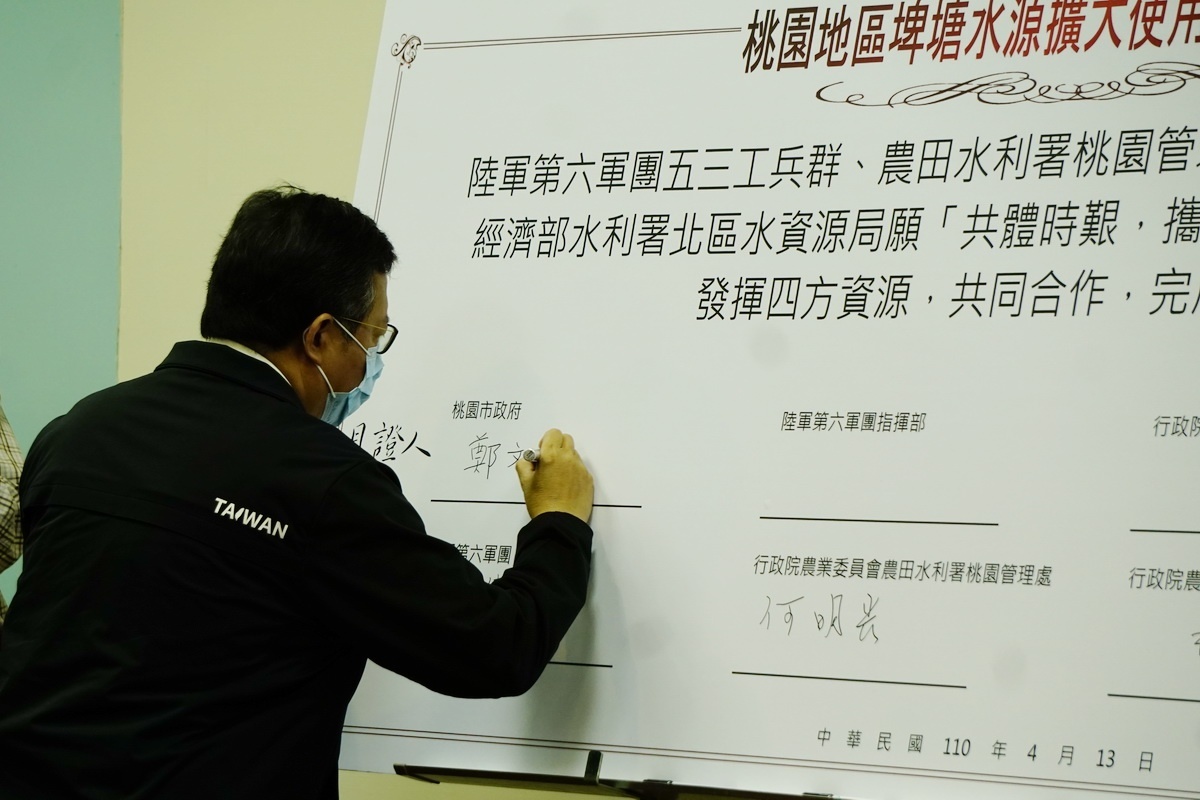 桃園地區埤塘水源擴大使用
陸軍第六軍團五三工兵群、農田水利署桃園管
經濟部水利署北區水資源局願「共體時艱，攜
發揮四方資源，共同合作，完
桃園市政府
陸軍第六軍團指揮部
行政院
見證人
鄭文
TAIWAN
第六軍團
行政院農業委員會農田水利署桃園管理處
行政院農
何明
中華民國 110 年 4 月 13 日